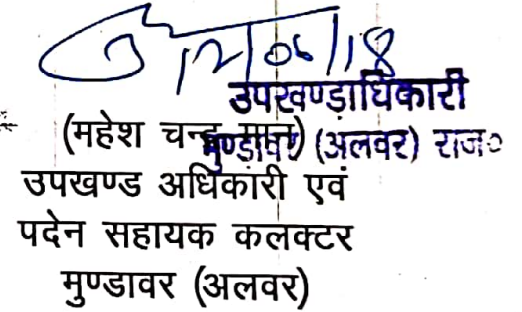 12/06/18
उपखण्डाधिकारी
मुण्डावर (अलवर) राज०
(महेश चन्द्र मान)
उपखण्ड अधिकारी एवं
पदेन सहायक कलक्टर
मुण्डावर (अलवर)